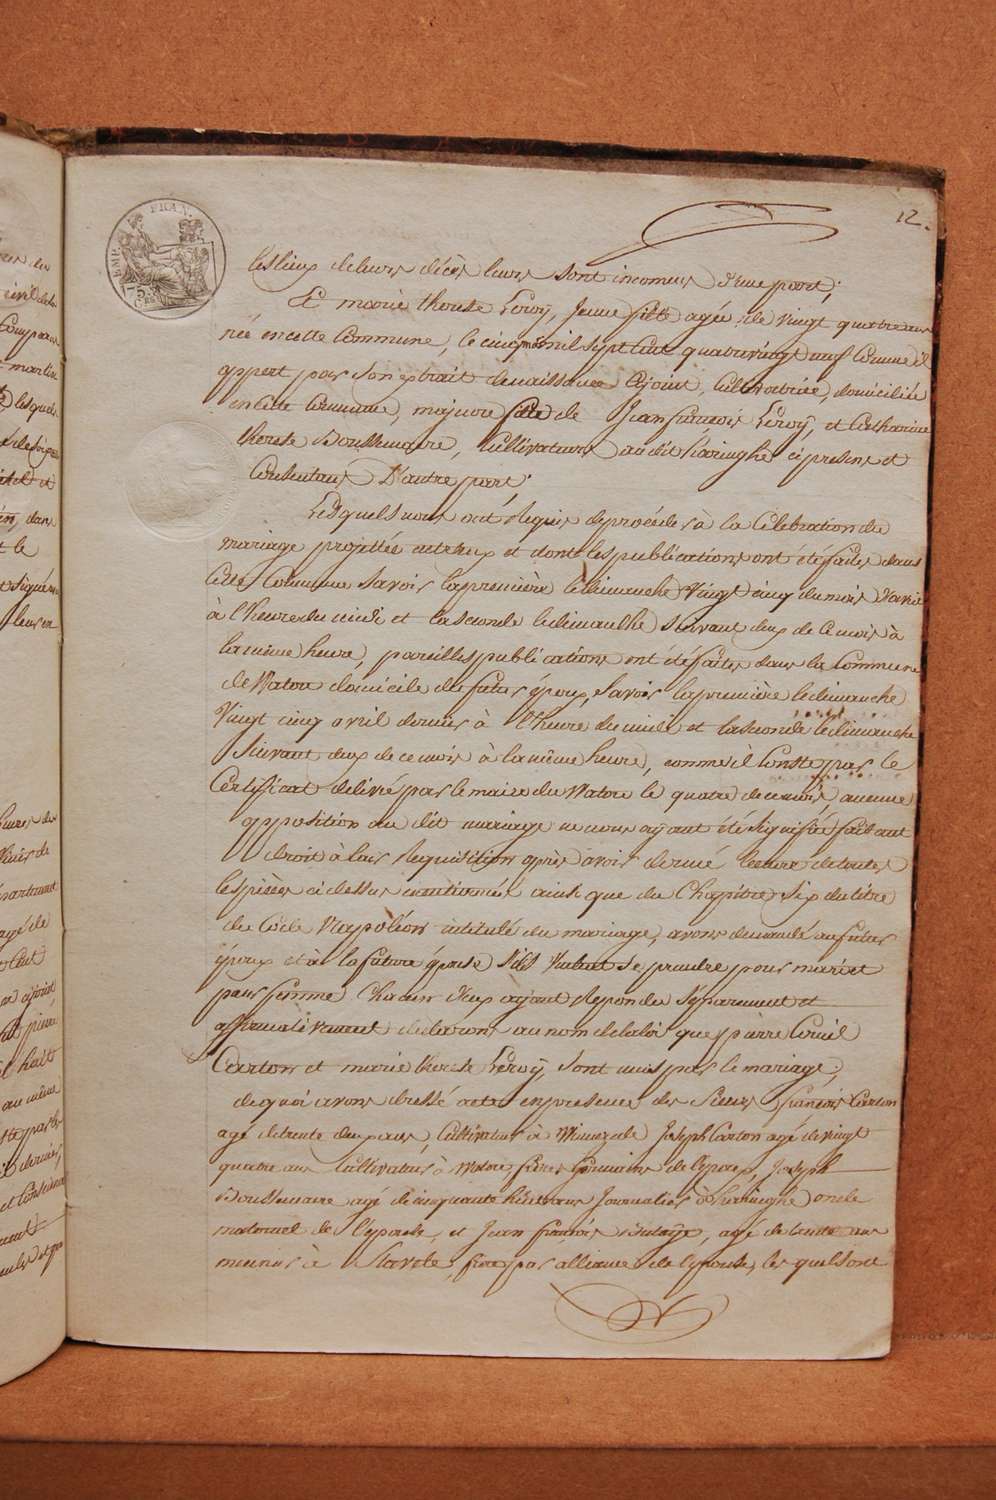 12.
EMP. FRAN.
les lieux de leurs décès leurs sont inconnus d'une part;
Et marie therese Leroÿ, jeune fille agée de vingt quatre ans
née en cette Commune, le cinq mai mil sept cent quatrevingt neuf comme il
appert par son extrait de naissance cijoint, cultivatrice, domiciliée
en cette Commune, majeure fille de Jean francois Leroÿ, et Catharine
therese Boussemaere, Cultivateurs au dit haringhe ci presens et
Consentans D'autre part;
Lesquels nous ont Requis de procéder à la Célébration du
mariage projettée entr'eux et dont les publications ont été faites dans
Cette Commune Savoir la première le dimanche Vingt cinq du mois d'avril
à l'heure du midi et la seconde le dimanche suivant deux de ce mois à
la même heure, pareilles publications ont été faites dans la Commune
de Watou domicile du futur époux, Savoir la première le dimanche
Vingt cinq avril dernier à l'heure de midi et la seconde le dimanche
Suivant deux de ce mois à la même heure, comme il Conste par le
Certificat délivré par le maire du Watou le quatre de ce mois, aucune
opposition au dit mariage ne nous aÿant été signifiée faisant
droit à leur Requisition après avoir donné lecture de toutes
les pièces ci dessus mentionnés ainsi que du Chapitre Six du titre
du Code Napoléon intitulé du mariage, avons demandé au futur
époux et à la future épouse s'ils veulent se prendre pour mari et
pour femme Chacun d'eux ayant Repondu Séparement et
affirmativement déclarons au nom de la loi que pierre Corneil
Carton et marie therese Leroÿ, sont unis par le mariage;
de quoi avons dressé acte en presence des Sieurs francois Carton
agé de trente deux ans, Cultivateur à Winnezeele Joseph Carton agé de vingt
quatre ans Cultivateur à Watou frères germains de l'epoux, Joseph
Boussemaere agé de cinquante huit ans Journalier à haringhe oncle
maternel de l'épouse, et Jean francois agé de trente ans
meunier à Stavele, frère par alliance de l'épouse, les quels ont